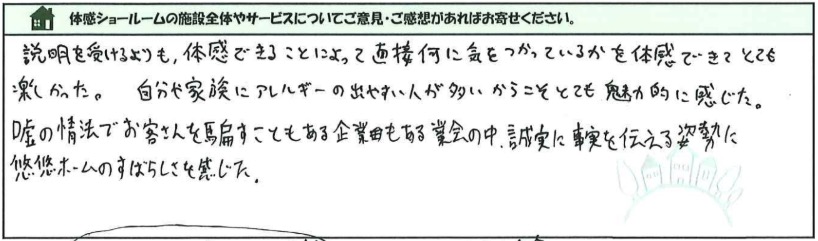 体感ショールームの施設全体やサービスについてご意見・ご感想があればお寄せください。
説明を受けるよりも,体感できることによって直接何に気をつかっているかを体感できてとても
楽しかった。 自分や家族にアレルギーの出やすい人が多いからこそとても魅力的に感じた。
嘘の情法でお客さんを騙すこともある企業もある業会の中、誠実に事実を伝える姿勢に
悠悠ホームのすばらしさを感じた。